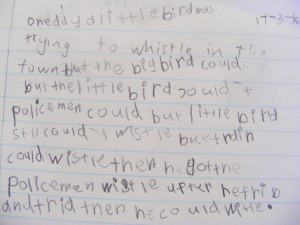 oneddy d little bird was 17-3-
trying to whistle in the
town but the big bird could
but the little bird could t
policemen could but little bird
still could t wistle but trdin
could wistle then he got the
policemen wistle ufter he trid
and trid then he could wistle.